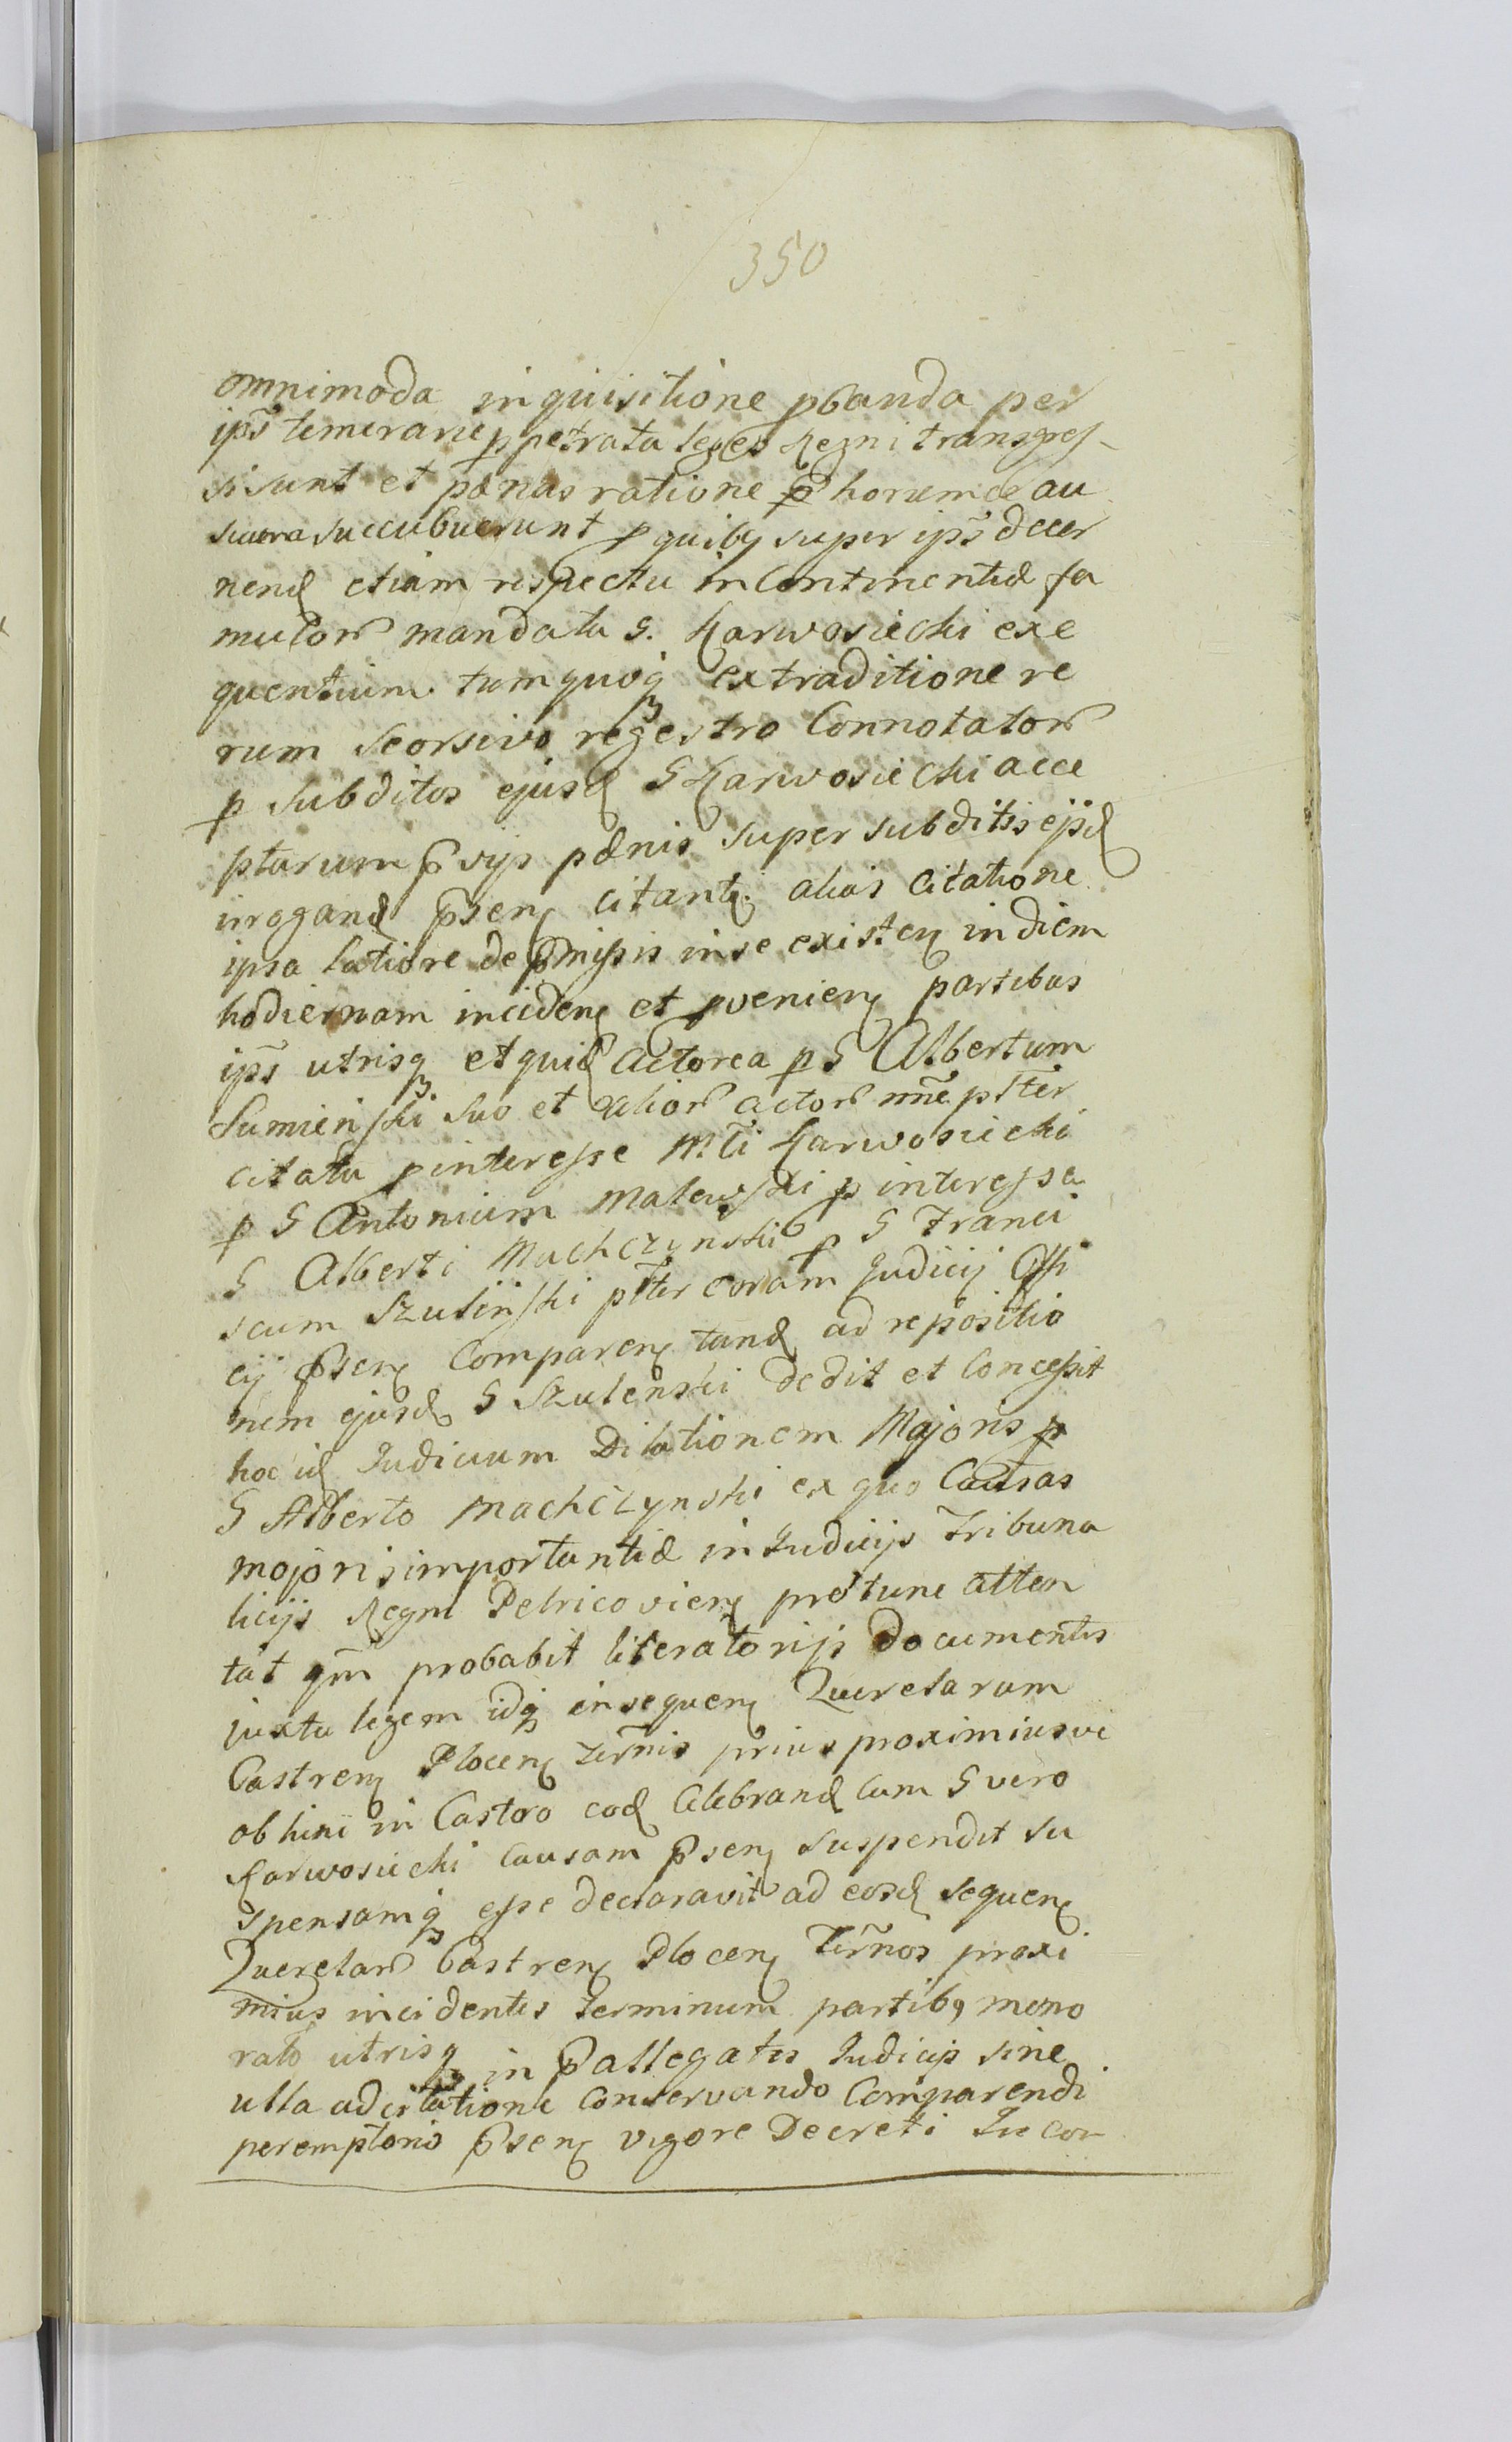 350
omnimoda inquisitione pbanda per
ips̃ temerarie ppetrata leges Regni transgres-
si sunt et pænas ratione p̃ horumce au
suum succubuerunt p quibꝫ super ips̃ decer
nend etiam respectu incontinentiæ fa
mulor mandata G. Karwosiecki exe
quentium tum quoqꝫ extraditione re
rum seorsivo regestro Connotator
p subditos ejusd G Karwosiecki acce
ptarum p̃vijs pænis super subditis ejsd
irrogand p̃sen citant alias Citatione
ipsa latiore de p̃missis in se existen in diem
hodiernam inciden et pvenien partibus
ips̃ utrisqꝫ et quid Actorea p G Albertum
Sumieński suo et alior actor nñe pSter
citata p interesse M. Karwosiecki
p G Antonium Malewski p interesse
G Alberti Machczynski p G Franci
scum Szuliński pSter coram Judicij Offi
cij p̃sen Comparen tand ad repositio
nem ejusd G Szulenski dedit et Concessit
hoc id Judicium Dilationem Majoris p
G Alberto Machczynski ex quo Causas
majoris importantiæ in Judicijs Tribuna
licijs Regni Petricovien protunc atten
tat qm̃ probabit literatorijs documentis
juxta legem idqꝫ in sequen Querelarum
Castren Plocen Term̃is prius proximiusve
ob hinc in Castro eod Celebrand Cum G vero
Karwosiecki Causam p̃sen Suspendit su
spensamqꝫ esse declaravit ad eosd sequen
Querelar Castren Plocen Term̃os proxi
mius incidentes Terminum partibꝫ memo
ratis utrisqꝫ in p̃allegatis Judicijs sine
ulla adcitatione conservando Comparendi
peremptorio p̃sen vigore Decreti In cor